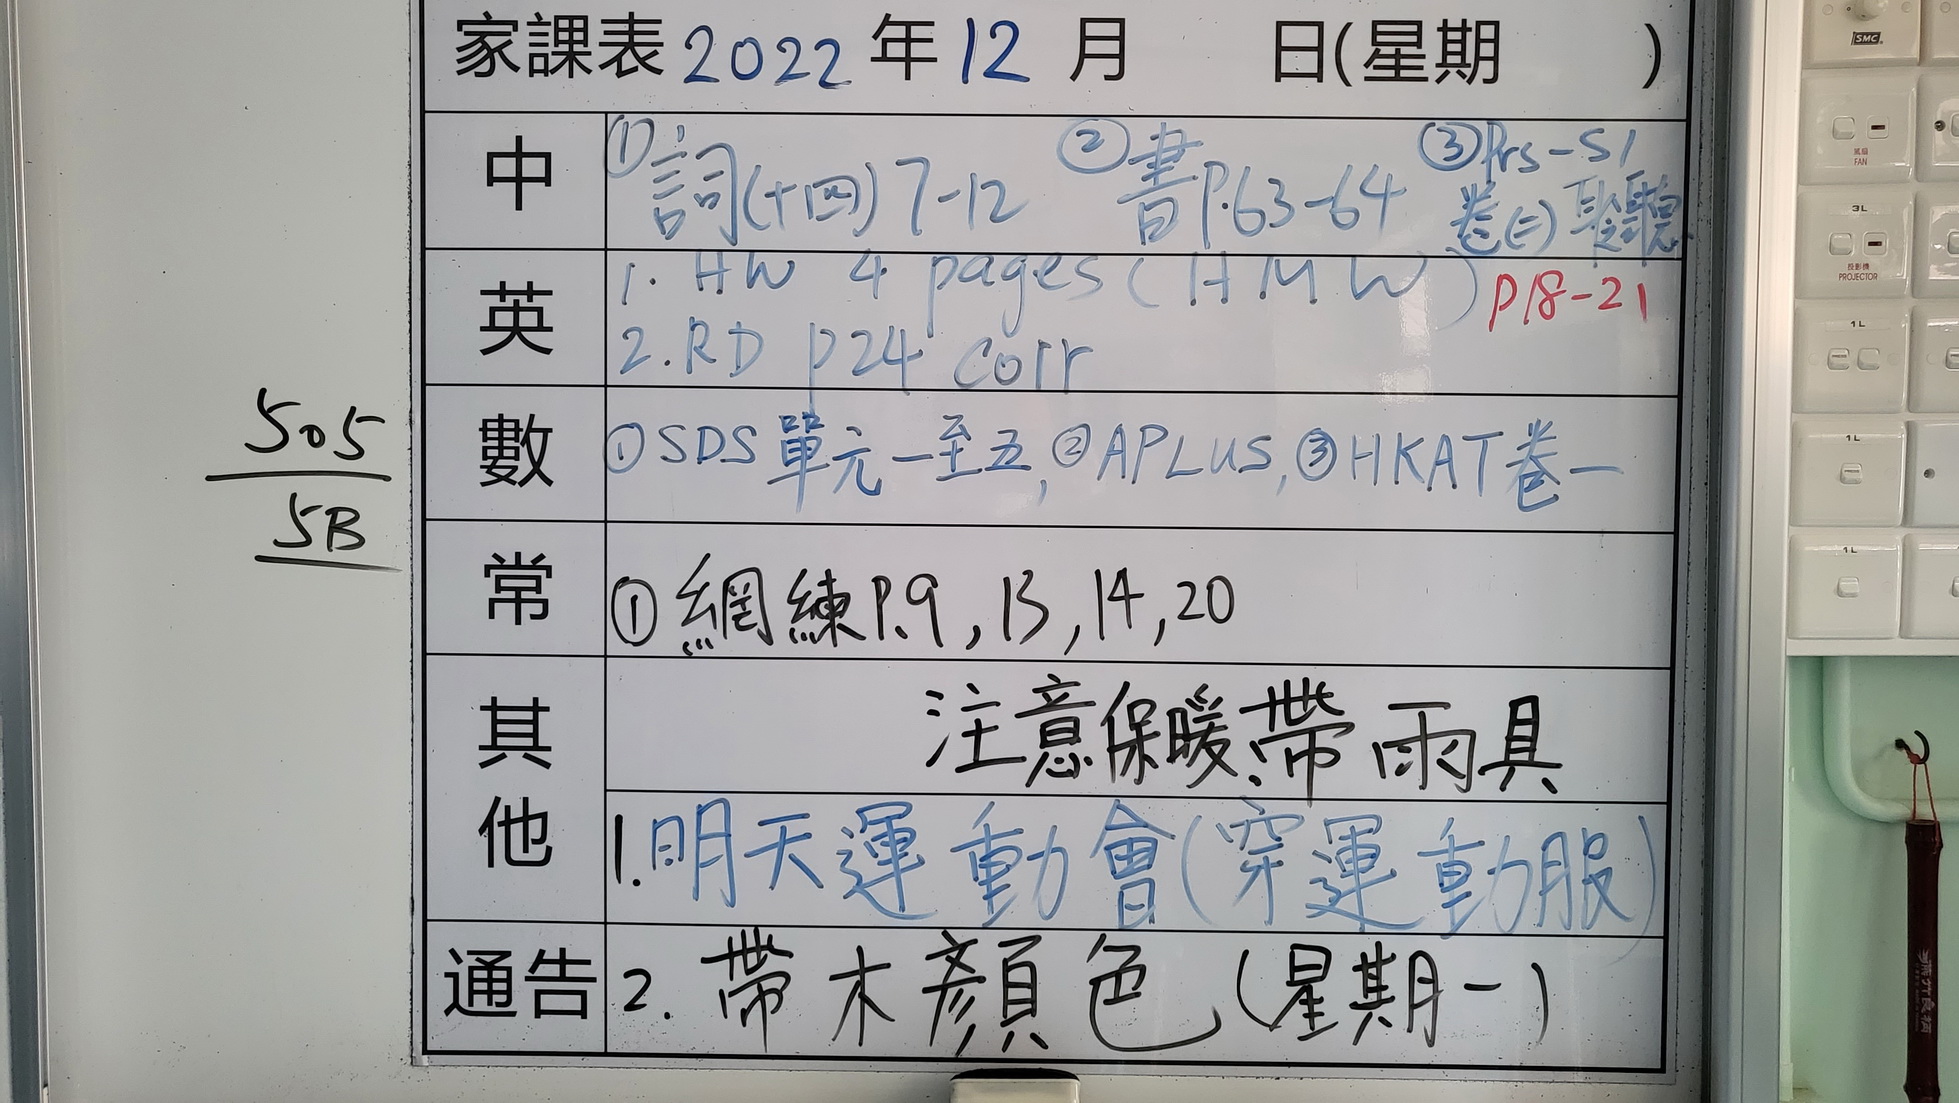 家課表 2022 年 12 月 日(星期 )
中 ① 詞(十四) 7-12 ② 書P.63-64 ③ Prs-S1
卷(二) 聆聽
英 1. HW 4 pages (HMW) P18-21
2. RD p24 corr
數 ① SDS 單元一至五, ② APLUS, ③ HKAT 卷一
常 ① 網練 P.9, 13, 14, 20
其他 注意保暖、帶雨具
1. 明天運動會(穿運動服)
通告 2. 帶木顏色(星期一)
505
5B
SMC
風扇
FAN
3L
投影機
PROJECTOR
1L
1L
1L